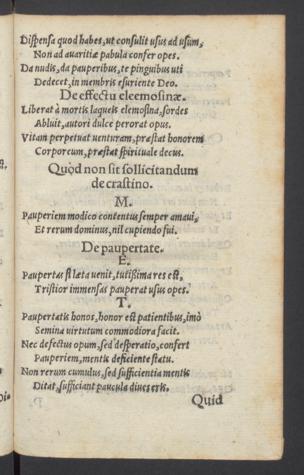 Dispensa quod habes, ut consulit usus ad usum,
Non ad avaritiæ pabula confer opes.
Da nudis, da pauperibus, te pinguibus uti
Dedecet, in membris esuriente Deo.
De effectu eleemosinæ.
Liberat à mortis laqueis elemosina, sordes
Abluit, autori dulce perorat opus.
Vitam perpetuat venturam, præstat honorem
Corporeum, præstat spirituale decus.
Quòd non sit sollicitandum
de crastino.
M.
Pauperiem modico contentus semper amavi,
Et rerum dominus, nil cupiendo fui.
De paupertate.
E.
Paupertas si læta venit, tutißima res est,
Tristior immensas pauperat usus opes.
T.
Paupertatis honos, honor est patientibus, imò
Semina virtutum commodiora facit.
Nec defectus opum, sed desperatio, confert
Pauperiem, mentis deficiente statu.
Non rerum cumulus, sed sufficientia mentis
Ditat, sufficiant paucula dives eris.
Quid